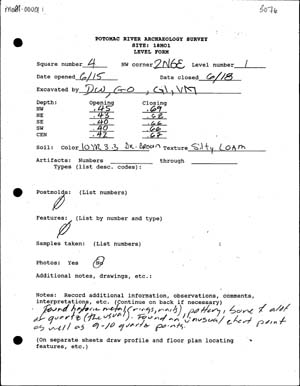 3076
POTOMAC RIVER ARCHAEOLOGY SURVEY
SITE: 18MO1
LEVEL FORM
Square number 4 NW corner 2NGE Level number 1
Date opened 6/15 Date closed 6/18
Excavated by DW, GO, GI, VM
Depth: Opening Closing
NW .45 .69
NE .43 .62
SE .40 .66
SW .40 .66
CEN .42 .67
Soil: Color 10YR 3.3 Dk. Brown Texture Silty Loam
Artifacts: Numbers through
Types (list desc. codes):
Postmolds: (List numbers)
Ø
Features: (List by number and type)
Ø
Samples taken: (List numbers)
Photos: Yes No
Additional notes, drawings, etc.:
Notes: Record additional information, observations, comments,
interpretations, etc. (Continue on back if necessary)
Found historic metal (rings, nails), pottery, bone & alot
of quartz (the usual). Found an unusual chert point
as well as 9-10 quartz points.
(On separate sheets draw profile and floor plan locating
features, etc.)